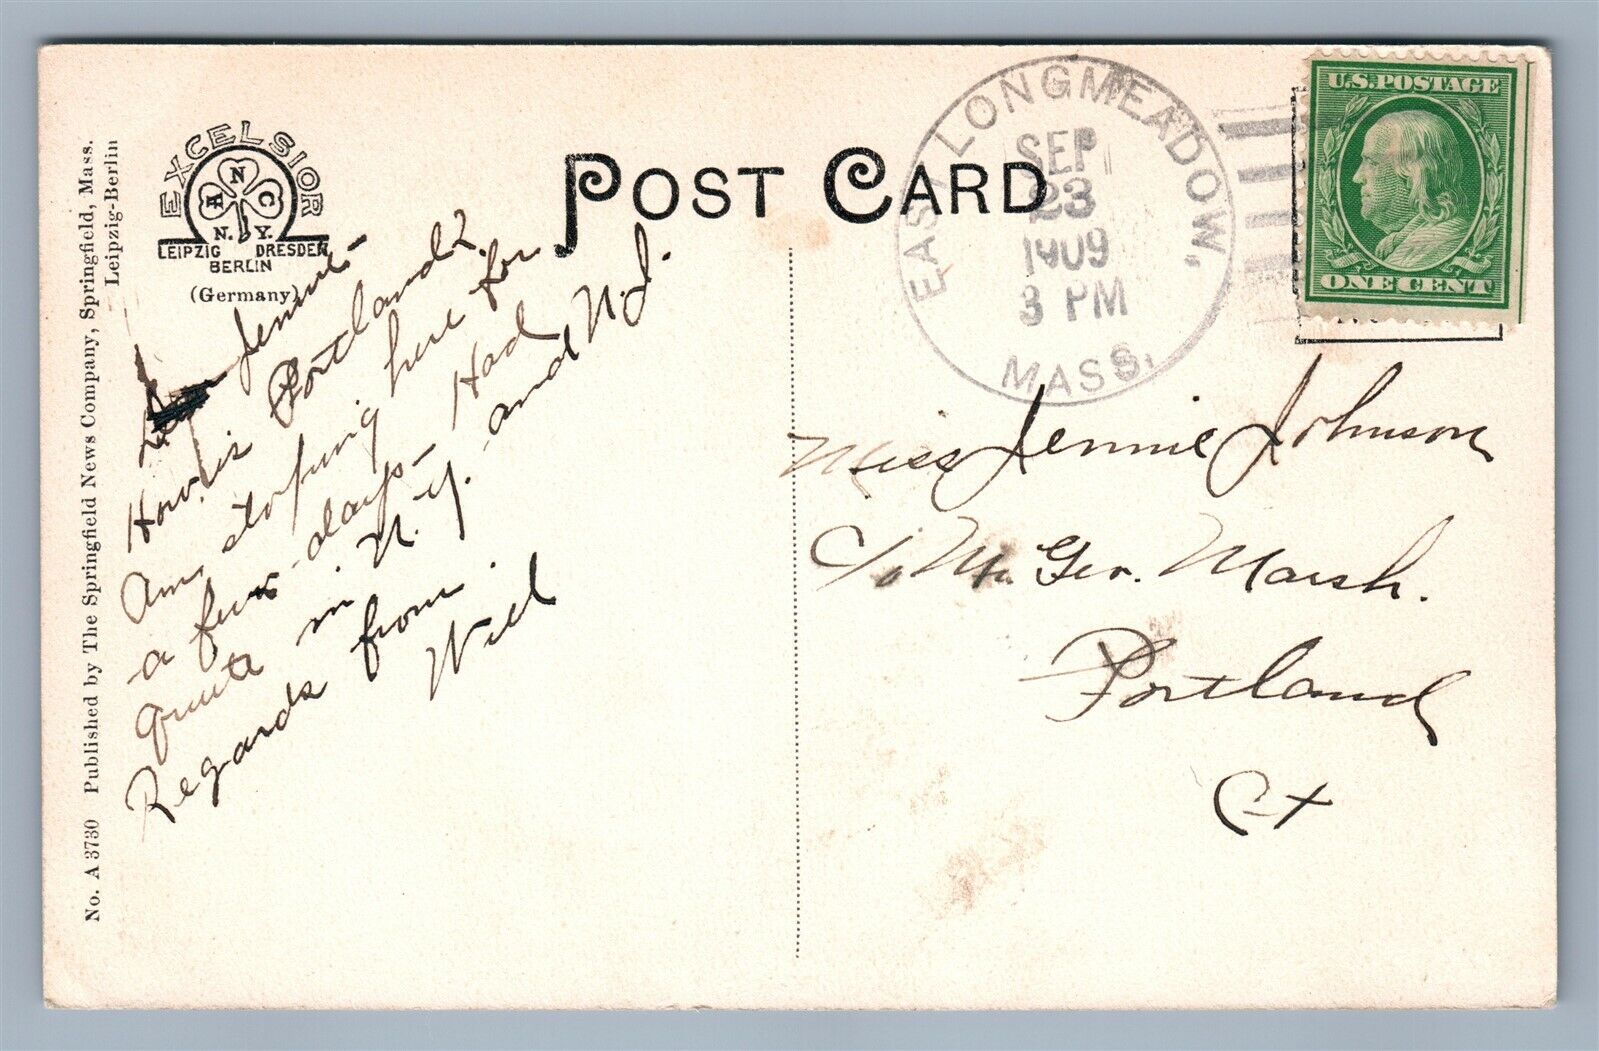 No. A 3730 Published by The Springfield News Company, Springfield, Mass.
Leipzig-Berlin
EXCELSIOR
A N C
N. Y.
LEIPZIG DRESDEN
BERLIN
(Germany)
POST CARD
EAST LONGMEADOW,
SEP
23
1909
3 PM
MASS.
U.S. POSTAGE
ONE CENT
Jennie-
How is Portland?
Am stopping here for
a few days- Had
in N.Y. and N.J.
Regards from
Will
Miss Jennie Johnson
c/o Mr. Geo. Marsh.
Portland
Ct